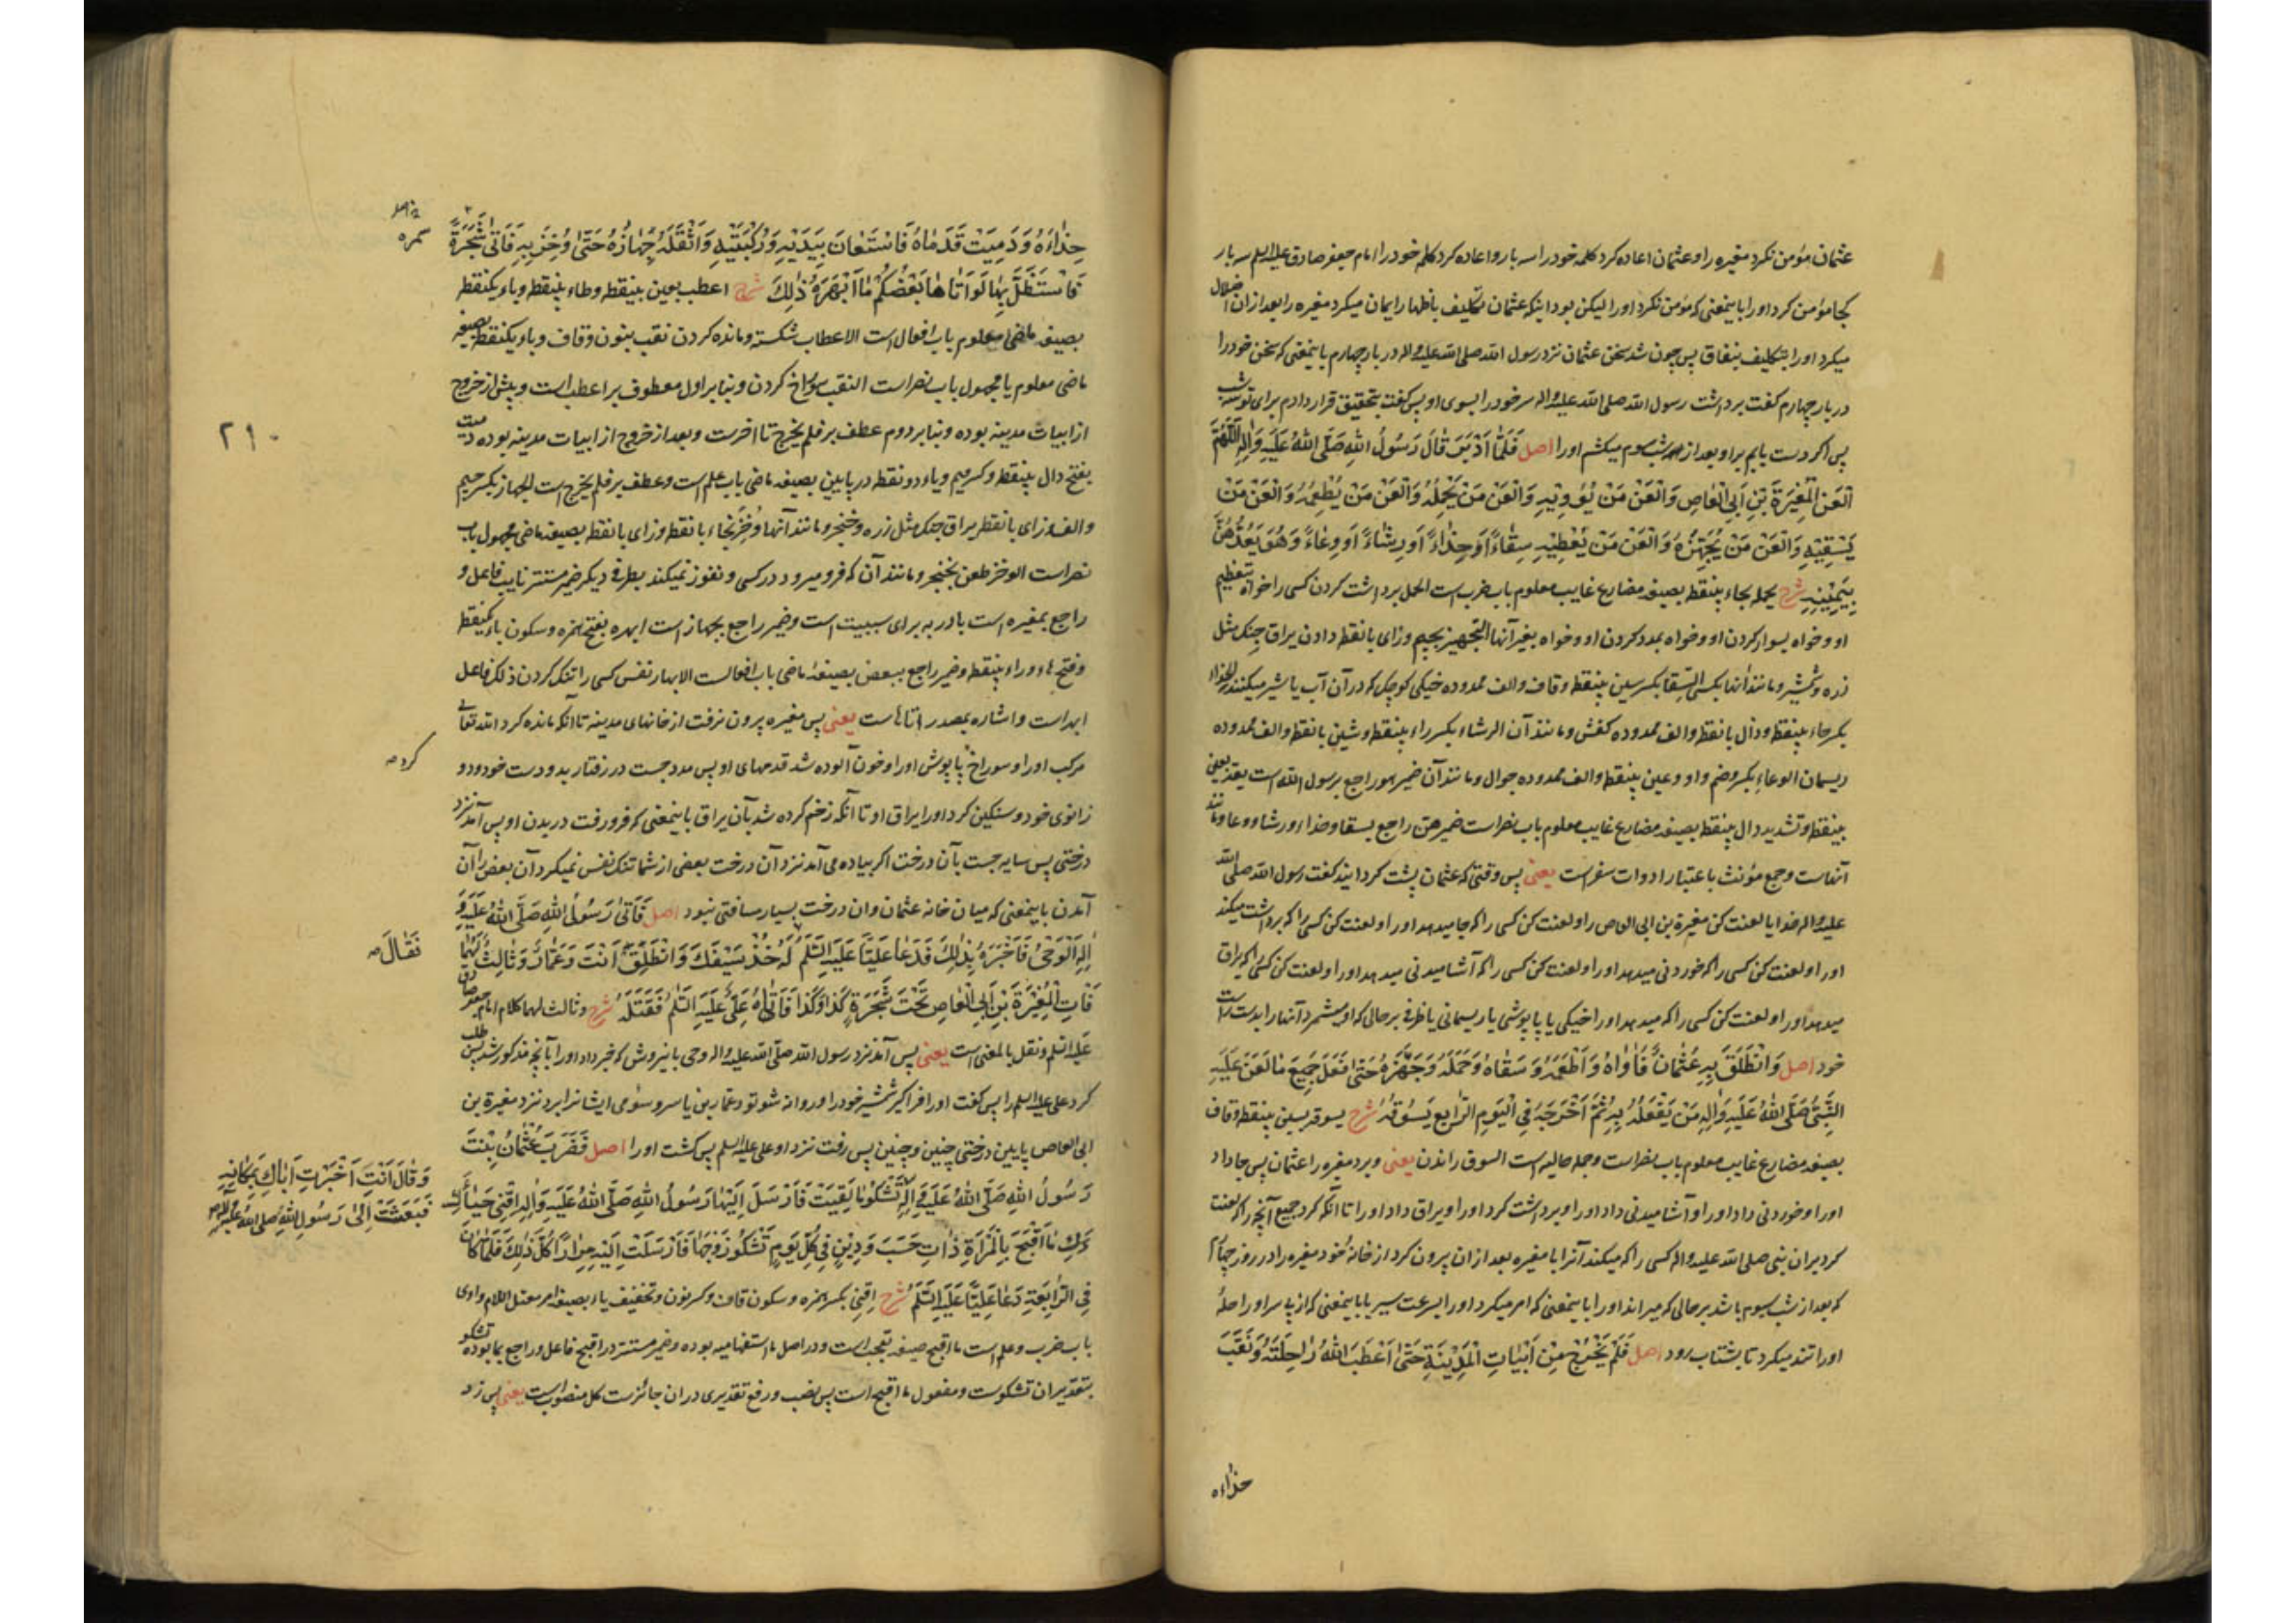 عثمان مؤمن نکرد مغیره را و عثمان اعاده کرد کلمه خود را سه بار و اعاده کرد کلام خود را امام جعفر صادق علیه السلم سه بار
کجا مؤمن کرد او را باینمعنی که مؤمن نکرد او را لیکن بود اینکه عثمان تکلیف باظهار ایمان میکرد مغیره را بعد ازان اضلال
میکرد او را بتکلیف بنفاق پس چون شد سخن عثمان نزد رسول الله صلی الله علیه و اله در بار چهارم باینمعنی که سخن خود را
در بار چهارم گفت برداشت رسول الله صلی الله علیه و اله سر خود را بسوی او پس گفت بتحقیق قرار دادم برای تو سه شب
پس اگر دست یابم بر او بعد از شب سوم میکشم او را اصل فَلَمَّا أَدْبَرَ قَالَ رَسُولُ اللهِ صَلَّى اللهُ عَلَيْهِ وَالِهِ اللّٰهُمَّ
الْعَنِ الْمُغِيْرَةَ بْنَ اَبِي الْعَاصِ وَالْعَنْ مَنْ يُؤْوِيْهِ وَالْعَنْ مَنْ يَحْمِلُهُ وَالْعَنْ مَنْ يُطْعِمُهُ وَالْعَنْ مَنْ
يَسْقِيْهِ وَالْعَنْ مَنْ يُجَهِّزُهُ وَالْعَنْ مَنْ يُعْطِيْهِ سِقَاءً اَوْ حِذَاءً اَوْ رِشَاءً اَوْ وِعَاءً وَهُوَ يَعُدُّهُنَّ
بِيَمِيْنِهِ شرح یحمله بحاء بینقطه بصیغه مضارع غایب معلوم باب ضرب است الحمل برداشت کردن کسی را خواه بتعظیم
او و خواه بسوار کردن او و خواه بمدد کردن او و خواه بغیر آنها التجهیز بجیم و زای بانقطه دادن یراق جنک مثل
زره و شمشیر و مانند آنها بکسی السقا بکسر سین بینقطه و قاف و الف ممدوده خیکی کوچک که در آن آب یا شیر میکنند الحذاء
بکسر حاء بینقطه و ذال بانقطه و الف ممدوده کفش و مانند آن الرشاء بکسر راء بینقطه و شین بانقطه و الف ممدوده
ریسمان الوعاء بکسر و ضم واو و عین بینقطه و الف ممدوده جوال و مانند آن ضمیر هو راجع برسول الله است یعد بعین
بینقطه و تشدید دال بینقطه بصیغه مضارع غایب معلوم باب نصر است ضمیر هن راجع بسقا و حذاء و رشا و وعا و مانند
آنهاست و جمع مؤنث باعتبار ادوات سفر است یعنی پس وقتی که عثمان پشت کردانید گفت رسول الله صلی الله
علیه و اله خدایا لعنت کن مغیرة بن ابی العاص را و لعنت کن کسی را که جا میدهد او را و لعنت کن کسی را که برداشت میکند
او را و لعنت کن کسی را که خوردنی میدهد او را و لعنت کن کسی را که آشامیدنی میدهد او را و لعنت کن کسی را که یراق
میدهد او را و لعنت کن کسی را که میدهد او را خیکی یا پاپوشی یا ریسمانی یا ظرفی بر حالی که او میشمرد آنها را بدست راست
خود اصل وَانْطَلَقَ بِهِ عُثْمَانُ فَاٰوَاهُ وَاَطْعَمَهُ وَسَقَاهُ وَحَمَلَهُ وَجَهَّزَهُ حَتّٰى فَعَلَ جَمِيْعَ مَا لَعَنَ عَلَيْهِ
النَّبِيُّ صَلَّى اللهُ عَلَيْهِ وَاٰلِهِ مَنْ يَفْعَلُهُ بِهِ ثُمَّ اَخْرَجَهُ فِي الْيَوْمِ الرَّابِعِ يَسُوْقُهُ شرح یسوقه بسین بینقطه و قاف
بصیغه مضارع غایب معلوم باب نصر است و جمله حالیه است السوق راندن یعنی و برد مغیره را عثمان پس جا داد
او را و خوردنی داد او را و آشامیدنی داد او را و برداشت کرد او را و یراق داد او را تا آنکه کرد جمیع آنچه را که لعنت
کرد بران نبی صلی الله علیه و اله کسی را که میکند آنرا با مغیره بعد ازان بیرون کرد از خانه خود مغیره را در روز چهارم
که بعد از شب سوم باشد بر حالی که میراند او را باینمعنی که امر میکرد او را بسرعت سیر یا باینمعنی که از پی سر او راحلهٔ
او را تند میکرد تا بشتاب رود اصل فَلَمْ يَخْرُجْ مِنْ اَبْيَاتِ الْمَدِيْنَةِ حَتّٰى اَعْطَبَ اللهُ رَاحِلَتَهُ وَنَقَبَ
حذاءه
حِذَاءَهُ وَدَمِيَتْ قَدَمَاهُ فَاسْتَعَانَ بِيَدَيْهِ وَرُكْبَتَيْهِ وَاَثْقَلَهُ جِهَازُهُ حَتّٰى وُخِزَ بِهِ فَاَتٰى شَجَرَةً
سمره
فَاسْتَظَلَّ بِهَا لَوْ اَتَاهَا بَعْضُكُمْ مَا اَبْهَرَهُ ذٰلِكَ شرح اعطب بعین بینقطه و طاء بینقطه و باء یکنقطه
بصیغه ماضی معلوم باب افعال است الاعطاب شکسته و مانده کردن نقب بنون و قاف و باء یکنقطه بصیغه
ماضی معلوم یا مجهول باب نصر است النقب سوراخ کردن و بنا بر اول معطوف بر اعطب است و پیش از خروج
۲۹۰
از ابیات مدینه بوده و بنا بر دوم عطف بر فلم یخرج تا اخرست و بعد از خروج از ابیات مدینه بوده دمیت
بفتح دال بینقطه و کسر میم و یاء دو نقطه در پایین بصیغه ماضی باب علم است و عطف بر فلم یخرج است الجهاز بکسر جیم
و الف و زای بانقطه یراق جنک مثل زره و خنجر و مانند آنها وُخِزَ بخاء بانقطه و زای بانقطه بصیغه ماضی مجهول باب
نصر است الوخز طعن بخنجر و مانند آن که فرو میرود در کسی و نفوذ نمیکند بطرف دیگر ضمیر مستتر نایب فاعل و
راجع بمغیره است با در به برای سببیت است و ضمیر راجع بجهاز است ابهره بفتح همزه و سکون باء یکنقطه
و فتح هاء و راء بینقطه و ضمیر راجع ببعض بصیغه ماضی باب افعالست الابهار نفس کسی را تنک کردن ذلک فاعل
ابهر است و اشاره بمصدر اتاهاست یعنی پس مغیره بیرون نرفت از خانهای مدینه تا آنکه مانده کرد الله تعالی
مرکب او را و سوراخ پاپوش او را و خون آلوده شد قدمهای او پس مدد جست در رفتار بدو دست خود و دو
کرد صه
زانوی خود و سنکین کرد او را یراق او تا آنکه زخم کرده شد بآن یراق باینمعنی که فرو رفت در بدن او پس آمد نزد
درختی پس سایه جست بآن درخت اکر پیاده می آمد نزد آن درخت بعضی از شما تنک نفس نمیکرد آن بعض را آن
آمدن باینمعنی که میان خانه عثمان و ان درخت بسیار مسافتی نبود اصل فَاَتٰى رَسُوْلَ اللهِ صَلَّى اللهُ عَلَيْهِ وَ
اٰلِهِ الْوَحْىُ فَاَخْبَرَهُ بِذٰلِكَ فَدَعَا عَلِيًّا عَلَيْهِ السَّلَمُ لَهُ خُذْ سَيْفَكَ وَانْطَلِقْ اَنْتَ وَعَمَّارٌ وَثَالِثٌ لَهُمَا
فَقَالَ صه
فَاْتِ الْمُغِيْرَةَ بْنَ اَبِي الْعَاصِ تَحْتَ شَجَرَةِ كَذَا وَكَذَا فَاَتَاهُ عَلِيٌّ عَلَيْهِ السَّلَمُ فَقَتَلَهُ شرح و ثالث لهما کلام امام جعفر صادق
علیه السلم و نقل بالمعنی است یعنی پس آمد نزد رسول الله صلی الله علیه و اله وحی باینروش که خبر داد او را بآنچه مذکور شد پس طلب
کرد علی علیه السلم را پس گفت او را فرا گیر شمشیر خود را و روانه شو تو و عمار بن یاسر و سومی ایشانرا برد نزد مغیرة بن
ابی العاص پایین درختی چنین و چنین پس رفت نزد او علی علیه السلم پس کشت او را اصل فَضَرَبَ عُثْمَانُ بِنْتَ
رَسُوْلِ اللهِ صَلَّى اللهُ عَلَيْهِ وَاٰلِهِ تَشْكُوْ مَا لَقِيَتْ فَاَرْسَلَ اِلَيْهَا رَسُوْلُ اللهِ صَلَّى اللهُ عَلَيْهِ وَاٰلِهِ اقْنِيْ حَيَاءَكِ
وَقَالَ اَنْتِ اَخْبَرْتِ اَبَاكِ بِمَكَانِهِ
فَبَعَثَتْ اِلٰى رَسُوْلِ اللهِ صلى الله عليه وآله
مَا اَقْبَحَ بِالْمَرْاَةِ ذَاتِ حَسَبٍ وَدِيْنٍ فِيْ كُلِّ يَوْمٍ تَشْكُوْ زَوْجَهَا فَاَرْسَلَتْ اِلَيْهِ مِرَارًا كُلَّ ذٰلِكَ فَلَمَّا كَانَ
فِي الرَّابِعَةِ دَعَا عَلِيًّا عَلَيْهِ السَّلَمُ شرح اقنی بکسر همزه و سکون قاف و کسر نون و تخفیف یاء بصیغه امر معتل اللام واوی
باب ضرب و علم است ما اقبح صیغه تعجب است و در اصل ما استفهامیه بوده و ضمیر مستتر در اقبح فاعل و راجع بما بوده تشکو
بتقدیر ان تشکوست و مفعول ما اقبح است پس نصب و رفع تقدیری در ان جائزست کل منصوبست یعنی پس زد